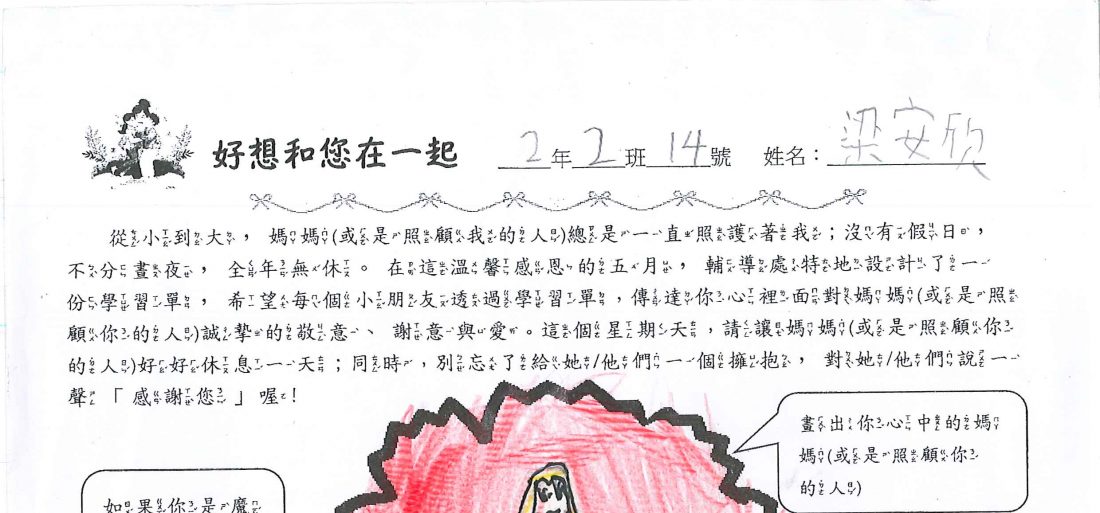 好想和您在一起 2年2班14號 姓名：梁安欣
從小到大，媽媽(或是照顧我的人)總是一直照護著我；沒有假日，
不分晝夜，全年無休。在這溫馨感恩的五月，輔導處特地設計了一
份學習單，希望每個小朋友透過學習單，傳達你心裡面對媽媽(或是照
顧你的人)誠摯的敬意、謝意與愛。這個星期天，請讓媽媽(或是照顧你
的人)好好休息一天；同時，別忘了給她/他們一個擁抱，對她/他們說一
聲「感謝您」喔！
畫出你心中的媽
媽(或是照顧你
的人)
如果你是魔